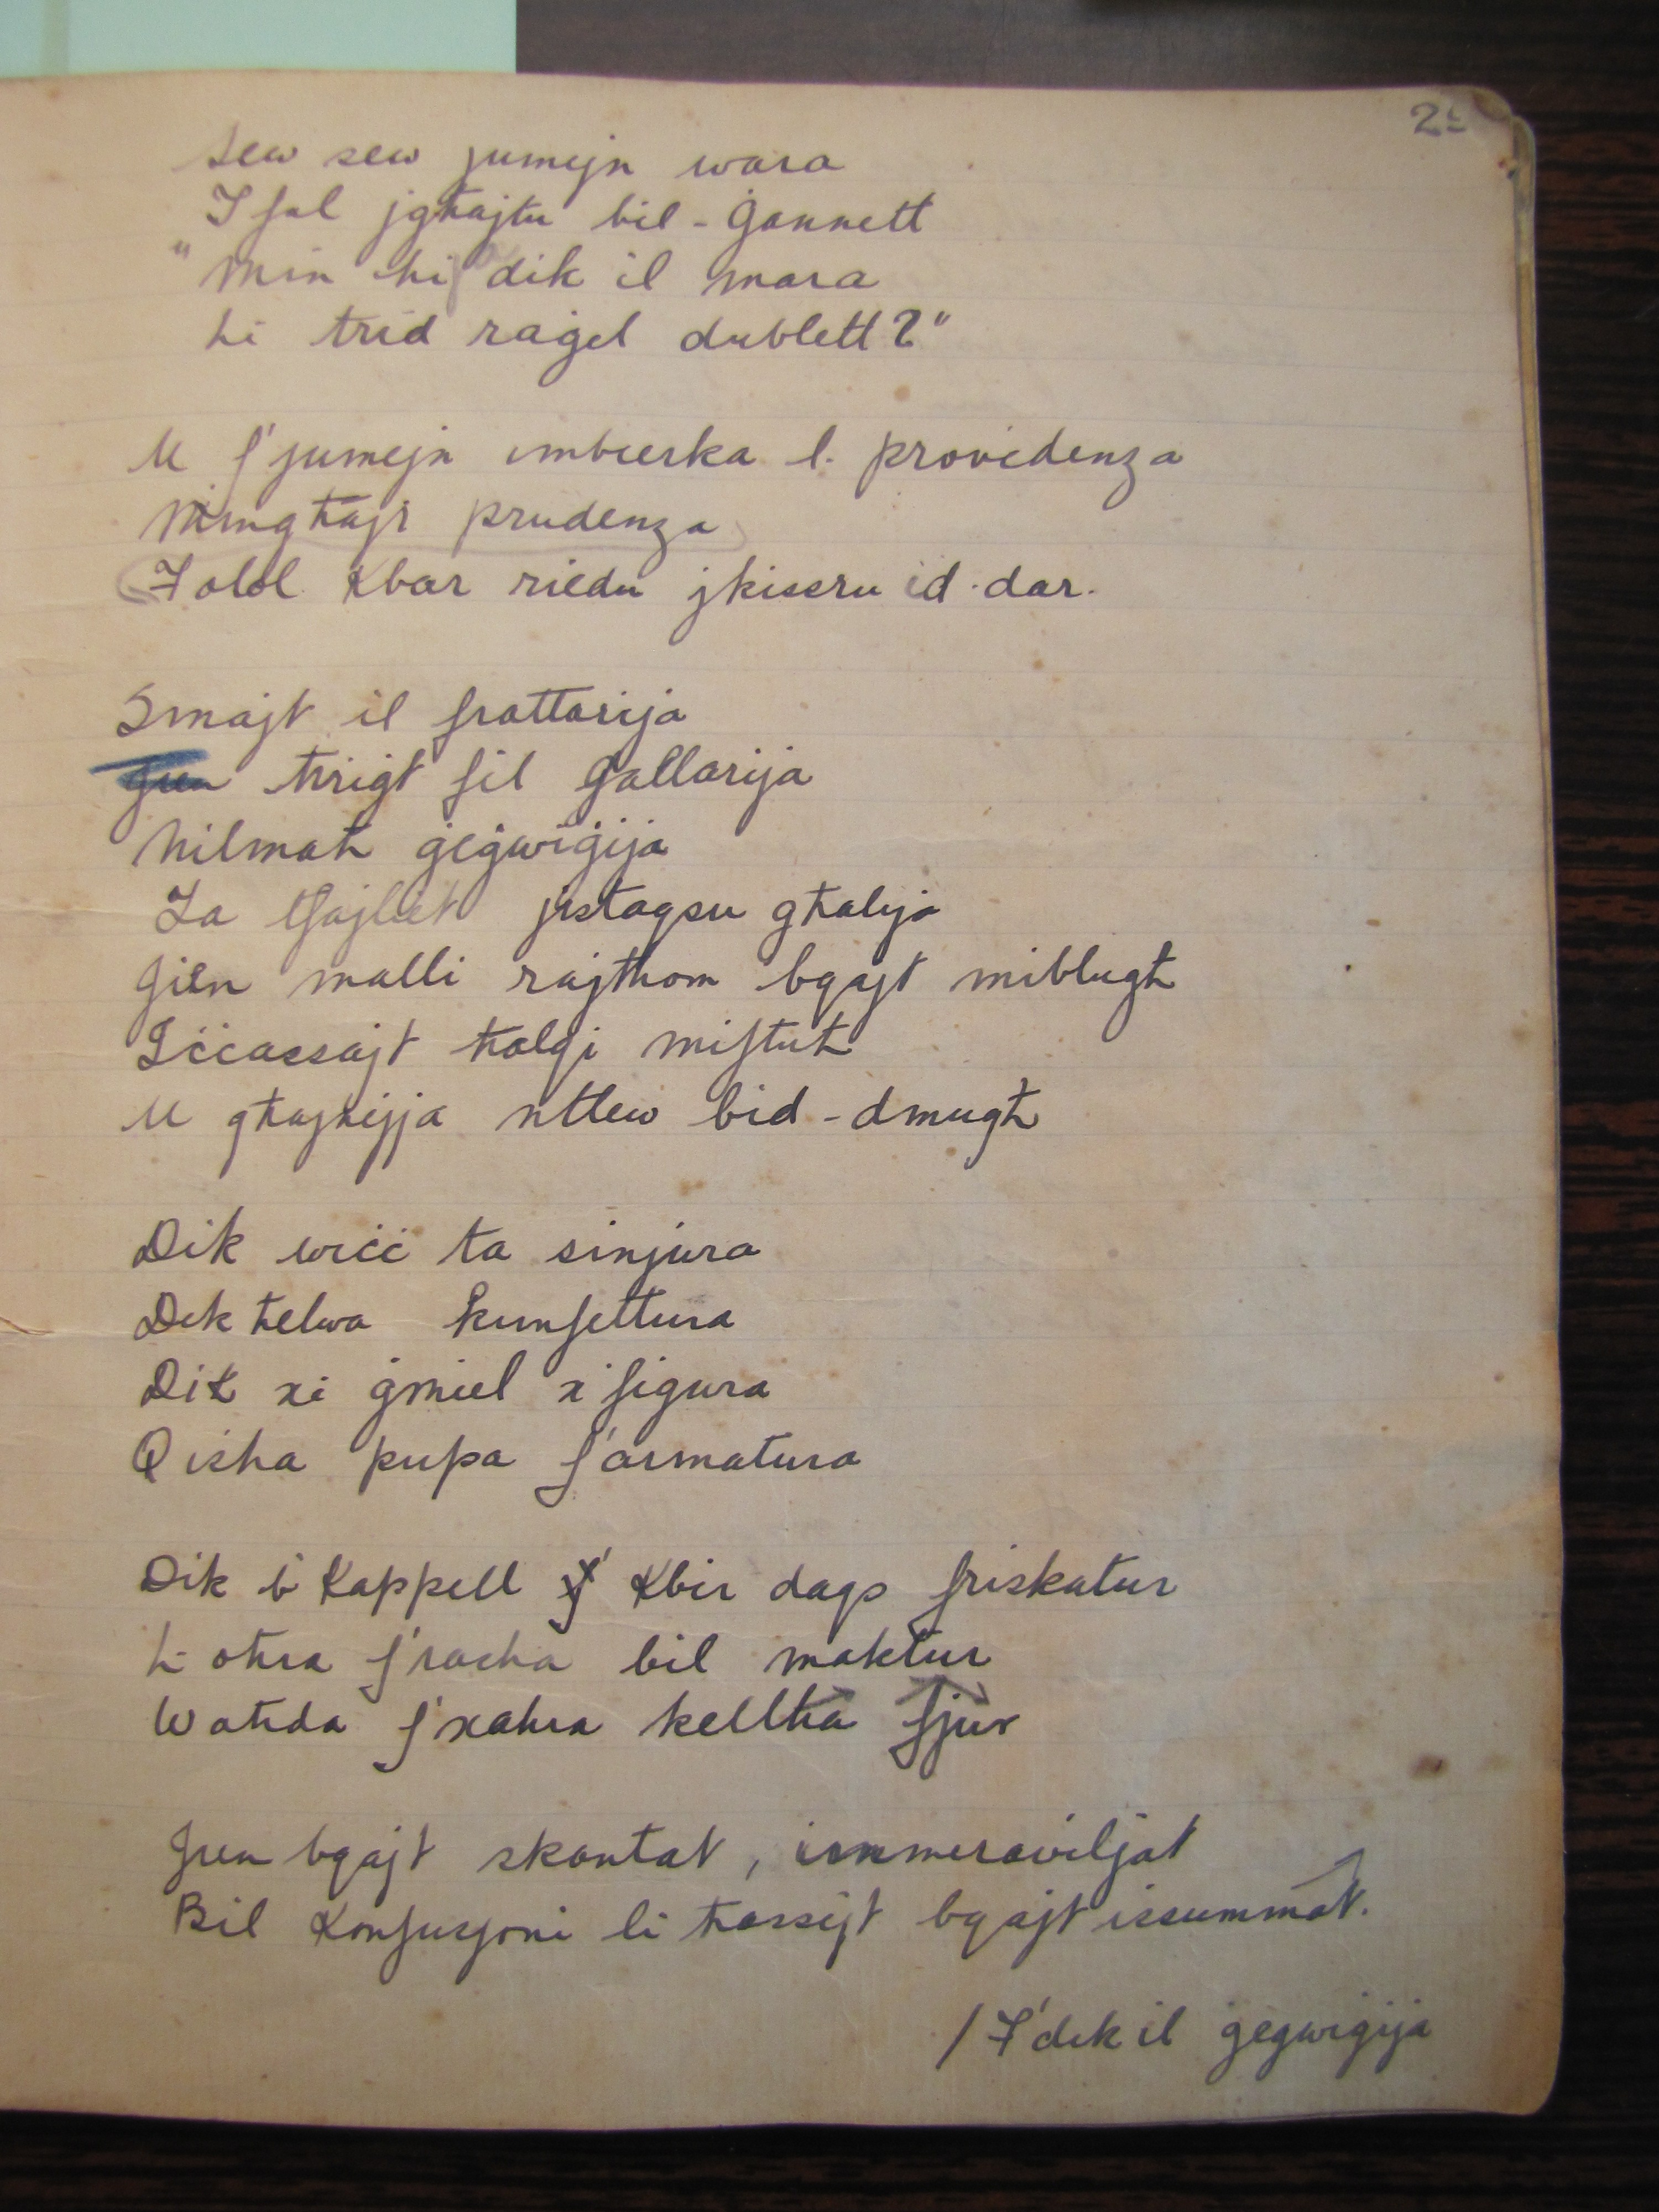 sew sew jumejn wara
Tfal jgħajtu bil-Gannett
"Min hi dik il mara
Li trid raġel dublett?"
U f'jumejn imbierka l. providenza
Mingħajr prudenza
Folol kbar riedu jkissru id-dar.
Smajt il frattarija
Jien ħriġt fil gallarija
Nilmaħ ġeġwiġija
Za tfajliet jistaqsu għalija
Jien malli rajthom bqajt miblugħ
Iċċassajt ħalqi miftuħ
U għajnejja ntlew bid-dmugħ
Dik wiċċ ta sinjura
Dik ħelwa kunfettura
Dik xi ġmiel x'figura
Qisha pupa f'armatura
Dik b' kappell f' kbir daqs friskatur
L-oħra f'rasha bil maktur
Waħda f'xahra kellha fjur
Jien bqajt skantat, immeraviljat
Bil konfusjoni li ħassejt bqajt issummat.
/F'dik il ġeġwiġija